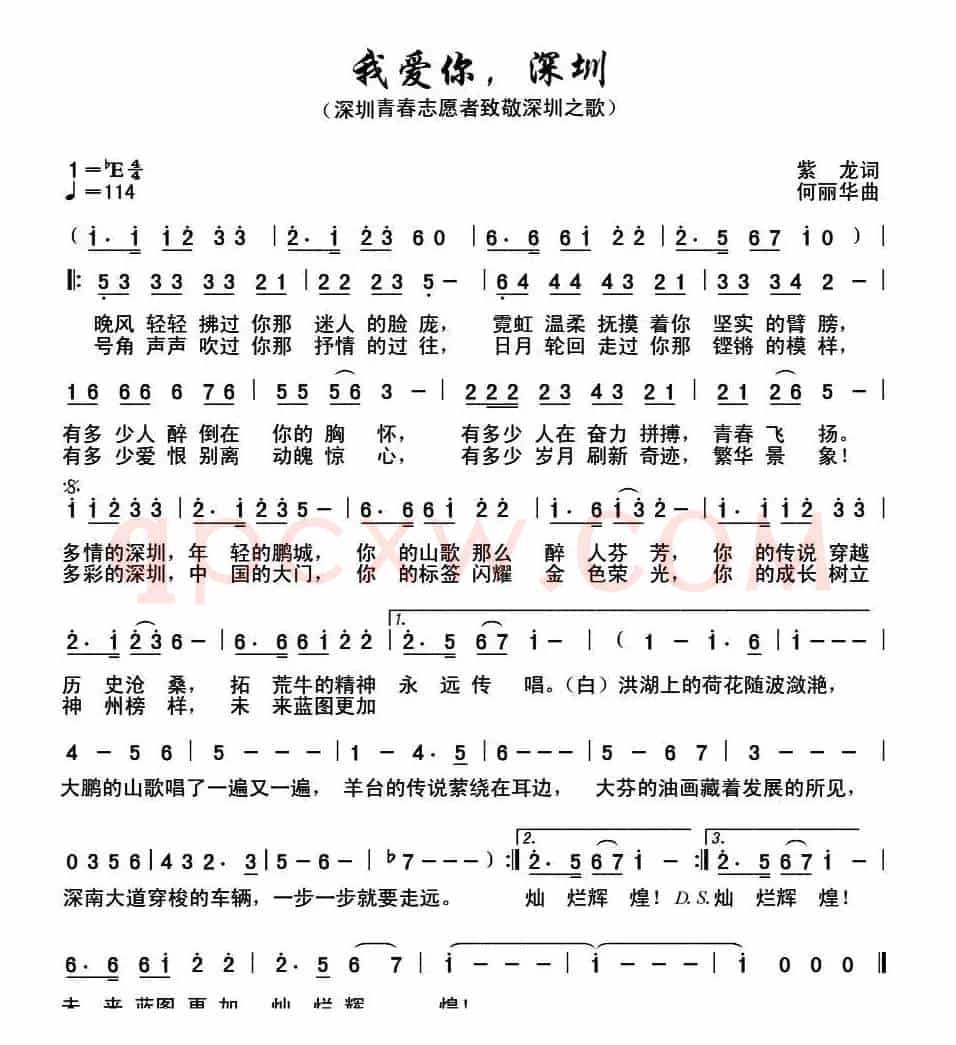 我爱你，深圳
（深圳青春志愿者致敬深圳之歌）
1=♭E 4/4
♩=114
紫 龙词
何丽华曲
( i· i i 2 3 3 | 2· i 2 3 6 0 | 6· 6 6 i 2 2 | 2· 5 6 7 i 0 ) |
‖: 5 3 3 3 3 3 2 1 | 2 2 2 3 5 - | 6 4 4 4 4 3 2 1 | 3 3 3 4 2 - |
晚风 轻轻 拂过 你那 迷人 的脸 庞， 霓虹 温柔 抚摸 着你 坚实 的臂 膀，
号角 声声 吹过 你那 抒情 的过 往， 日月 轮回 走过 你那 铿锵 的模 样，
1 6 6 6 6 7 6 | 5 5 5 6 3 - | 2 2 2 2 3 4 3 2 1 | 2 1 2 6 5 - |
有多 少人 醉 倒在 你的 胸 怀， 有多少 人在 奋力 拼搏，青春 飞 扬。
有多 少爱 恨 别离 动魄 惊 心， 有多少 岁月 刷新 奇迹，繁华 景 象！
i i 2 3 3 | 2· i 2 3 5 - | 6· 6 6 i 2 2 | i· 6 i 3 2 - | i· i i 2 3 3 |
多情的深圳，年 轻的鹏城， 你 的山歌 那么 醉 人芬 芳， 你 的传说 穿越
多彩的深圳，中 国的大门， 你 的标签 闪耀 金 色荣 光，你 的成长 树立
qpcxw.com
2· i 2 3 6 - | 6· 6 6 i 2 2 | 1. 2· 5 6 7 i - | ( 1 - i· 6 | i - - - |
历 史沧 桑， 拓 荒牛的精神 永 远传 唱。（白）洪湖上的荷花随波潋滟，
神 州榜 样， 未 来蓝图更加
4 - 5 6 | 5 - - - | 1 - 4· 5 | 6 - - - | 2 - 6 7 | 3 - - - |
大鹏的山歌唱了一遍又一遍， 羊台的传说萦绕在耳边， 大芬的油画藏着发展的所见，
0 3 5 6 | 4 3 2· 3 | 5 - 6 - | ♭7 - - - ) :‖ 2. 2· 5 6 7 i - :‖ 3. 2· 5 6 7 i - |
深南大道穿梭的车辆，一步一步就要走远。 灿 烂辉 煌！D.S.灿 烂辉 煌！
6· 6 6 i 2 2 | 2· 5 6 7 | i - - - | i - - - | i 0 0 0 ‖
未 来 蓝图 更 加 灿 烂 辉 煌！